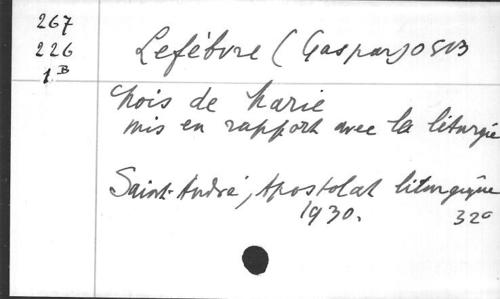 267
226
1.B
Lefébvre (Gaspar) OSB
Mois de Marie
mis en rapport avec la liturgie
Saint-André, Apostolat liturgique
1930.
32°